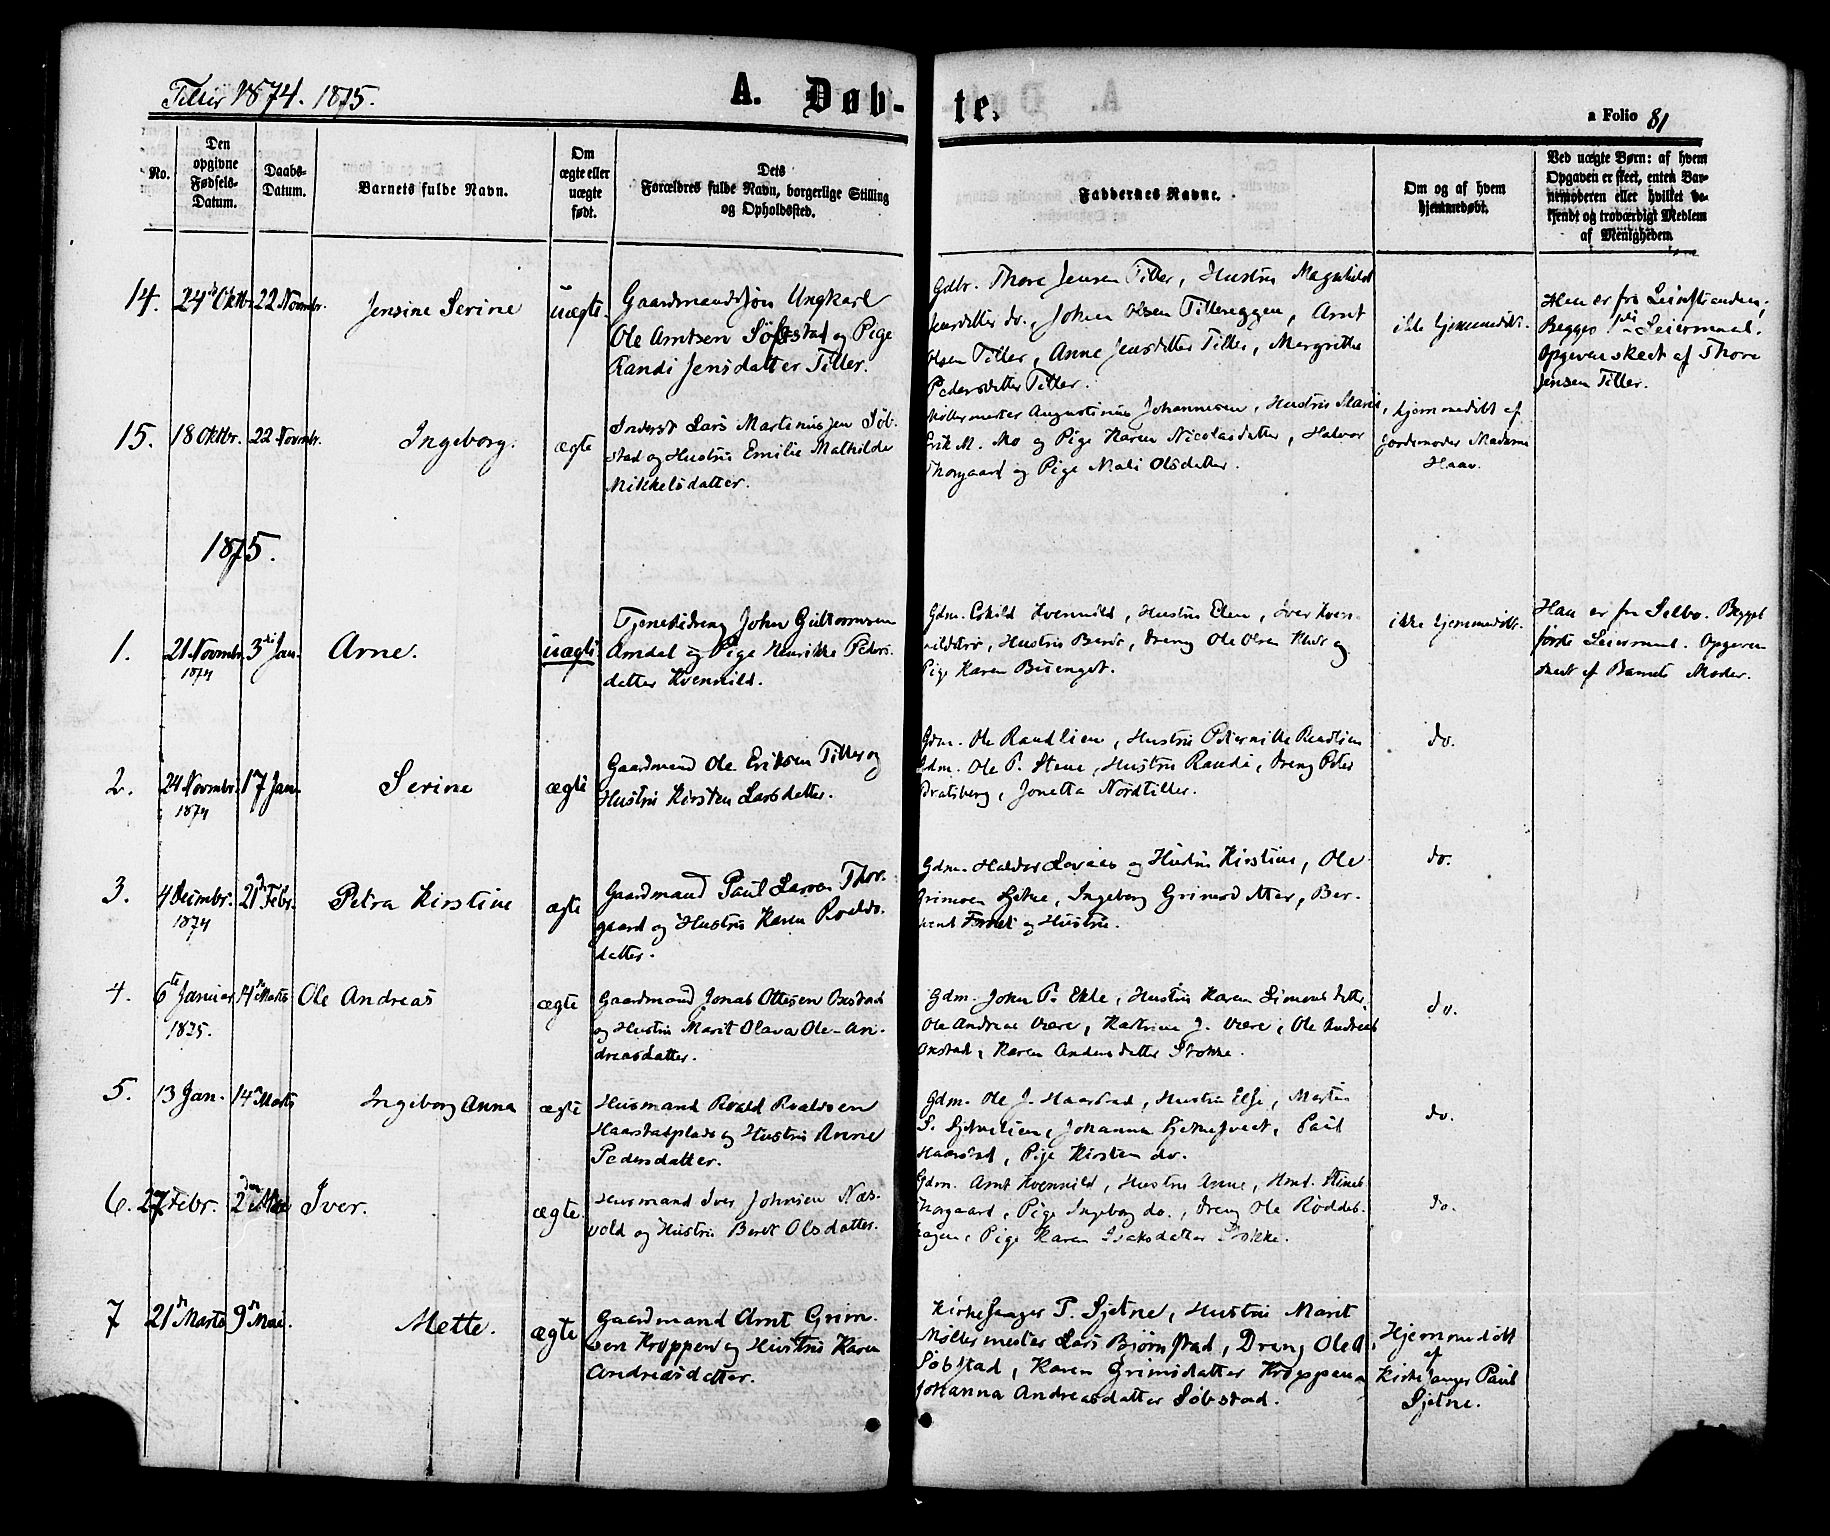 Tiller 1874. 1875.
A. Døb-
te.
a Folio 81
No.
Den opgivne Fødsels-Datum.
Daabs-Datum.
Barnets fulde Navn.
Om ægte eller uægte født.
Dets Forældres fulde Navn, borgerlige Stilling og Opholdssted.
Faddernes Navne.
Om og af hvem hjemmedøbt.
Ved uægte Børn: af hvem
Opgaven er skeet, enten Bar-
nemoderen eller hvilket be-
kjendt og troværdigt Medlem
af Menigheden.
14.
24de Oktbr.
22 Novmbr.
Jensine Serine
uægte.
Gaardmandssøn Ungkarl
Ole Arntsen Søbstad og Pige
Randi Jensdatter Tiller.
Gdbr. Thore Jensen Tiller, Hustru Magnhild
Jensdatter do., Johan Olsen Tillereggen, Arnt
Olsen Tiller, Anne Jensdatter Tiller, Margrethe
Pedersdatter Tiller.
ikke hjemmedøbt.
Han er fra Leinstranden;
Begges 1ste Leiermaal.
Opgaven skeet af Thore
Jensen Tiller.
15.
18 Oktbr.
22 Novmbr.
Ingeborg.
ægte
Inderst Lars Martinussen Søb-
stad og Hustru Emilie Mathilde
Mikkelsdatter.
Møllermester Augustinus Johannesen, Hustru Marie,
Erik M. Mo og Pige Karen Nicolaisdatter, Halvor
Thorgaard og Pige Mali Olsdatter.
hjemmedøbt af
Jordemoder Madame
Haav.
1875.
1.
21 Novmbr.
1874
3die Jan.
Arne.
uægte
Tjenestedreng John Guttormsen
Amdal og Pige Henrikke Peders-
datter Kvenild.
Gdm. Eskild Kvenild, Hustru Elen, Iver Kve-
nildstrø, Hustru Beret, Dreng Ole Olsen Hust og
Pige Karen Buenget.
ikke hjemmedøbt.
Han er fra Selbo. Begges
første Leiermaal. Opgaven
skeet af Barnets Moder.
2.
24 Novmbr.
1874
17 Jan.
Serine
ægte
Gaardmand Ole Eriksen Tiller og
Hustru Kirsten Larsdatter.
Gdm. Ole Randlien, Hustru Pedernikke Randlien
Gdm. Ole P. Stene, Hustru Randi, Dreng Peter
Bratsberg, Jonetta Nordtiller.
do.
3.
4 Decmbr.
1874
21de Febr.
Petra Kirstine
ægte
Gaardmand Paul Larsen Thor-
gaard og Hustru Karen Roalds-
datter.
Gdm. Haldor Løvaas og Hustru Kirstine, Ole
Grimsen Sjetne, Ingeborg Grimsdatter, Ber-
nt og Hustru.
do.
4.
6te Januar
1875.
14de Marts
Ole Andreas
ægte
Gaardmand Jonas Ottesen Oxstad
og Hustru Marit Olava Ole-An-
dreasdatter.
Gdm. John P. Ekle, Hustru Karen Simonsdatter
Ole Andreas Være, Kathrine J. Være, Ole Andreas
Oxstad, Karen Andersdatter Stokke.
do.
5.
13 Jan.
14de Marts
Ingeborg Anna
ægte
Husmand Roald Roaldsen
Haarstadplads og Hustru Anne
Pedersdatter.
Gdm. Ole J. Haarstad, Hustru Else, Morten
S. Sjetnelien, Johanna Sjetnehvedt, Paul
Haarstad, Pige Kirsten do.
do.
6.
27 Febr.
2den Mai
Iver.
ægte.
Husmand Iver Johnsen Næs-
vold og Hustru Beret Olsdatter.
Gdm. Arnt Kvenild, Hustru Anne, Hmd. Stines
Thorgaard, Pige Ingeborg do., Dreng Ole Rødde-
hagen, Pige Karen Isaksdatter Stokke.
do.
7
21de Marts
9de Mai.
Mette.
ægte
Gaardmand Arnt Grim-
sen Kroppen og Hustru Karen
Andreasdatter.
Kirkesanger P. Sjetne, Hustru Marit
Møllermester Lars Bjørnstad, Dreng Ole A.
Søbstad, Karen Grimsdatter Kroppen,
Johanna Andreasdatter Søbstad.
Hjemmedøbt
af
Kirkesanger Paul
Sjetne.